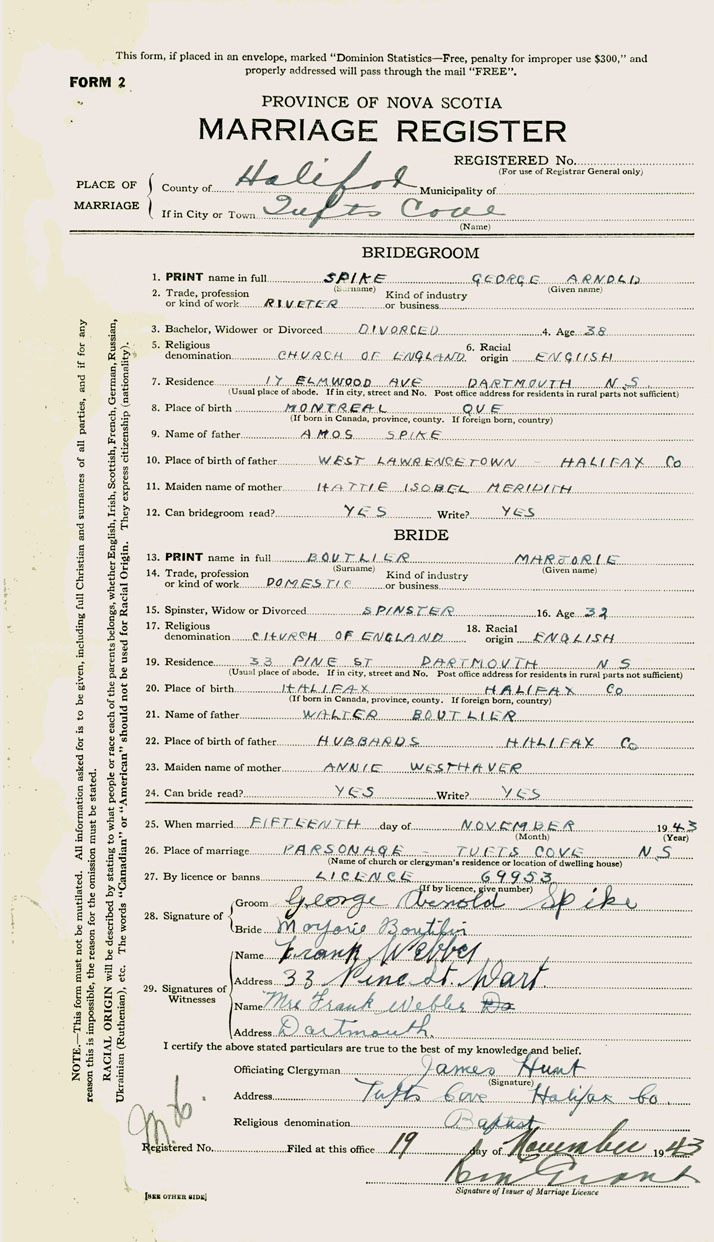 This form, if placed in an envelope, marked "Dominion Statistics—Free, penalty for improper use $300," and
properly addressed will pass through the mail "FREE".
FORM 2
PROVINCE OF NOVA SCOTIA
MARRIAGE REGISTER
REGISTERED No.
(For use of Registrar General only)
PLACE OF MARRIAGE
County of Halifax Municipality of
If in City or Town Tufts Cove
(Name)
BRIDEGROOM
1. PRINT name in full SPIKE GEORGE ARNOLD
(Surname) (Given name)
2. Trade, profession or kind of work RIVETER Kind of industry or business
3. Bachelor, Widower or Divorced DIVORCED 4. Age 38
5. Religious denomination CHURCH OF ENGLAND 6. Racial origin ENGLISH
7. Residence 17 ELMWOOD AVE DARTMOUTH N.S.
(Usual place of abode. If in city, street and No. Post office address for residents in rural parts not sufficient)
8. Place of birth MONTREAL QUE
(If born in Canada, province, county. If foreign born, country)
9. Name of father AMOS SPIKE
10. Place of birth of father WEST LAWRENCETOWN - HALIFAX Co
11. Maiden name of mother HATTIE ISOBEL MERIDITH
12. Can bridegroom read? YES Write? YES
BRIDE
13. PRINT name in full BOUTLIER MARJORIE
(Surname) (Given name)
14. Trade, profession or kind of work DOMESTIC Kind of industry or business
15. Spinster, Widow or Divorced SPINSTER 16. Age 32
17. Religious denomination CHURCH OF ENGLAND 18. Racial origin ENGLISH
19. Residence 33 PINE ST DARTMOUTH N S
(Usual place of abode. If in city, street and No. Post office address for residents in rural parts not sufficient)
20. Place of birth HALIFAX HALIFAX Co
(If born in Canada, province, county. If foreign born, country)
21. Name of father WALTER BOUTLIER
22. Place of birth of father HUBBARDS HALIFAX Co
23. Maiden name of mother ANNIE WESTHAVER
24. Can bride read? YES Write? YES
25. When married FIFTEENTH day of NOVEMBER 1943
(Month) (Year)
26. Place of marriage PARSONAGE - TUFTS COVE N.S
(Name of church or clergyman's residence or location of dwelling house)
27. By licence or banns LICENCE 69953
(If by licence, give number)
28. Signature of
Groom George Arnold Spike
Bride Marjorie Boutilier
29. Signatures of Witnesses
Name Frank Webber
Address 33 Pine St. Dart
Name Mrs Frank Webber
Address Dartmouth
I certify the above stated particulars are true to the best of my knowledge and belief.
Officiating Clergyman James Hunt
(Signature)
Address Tufts Cove Halifax Co.
Religious denomination Baptist
Registered No. Filed at this office 19 day of November 1943
Signature of Issuer of Marriage Licence
[SEE OTHER SIDE]
NOTE.—This form must not be mutilated. All information asked for is to be given, including full Christian and surnames of all parties, and if for any
reason this is impossible, the reason for the omission must be stated.
RACIAL ORIGIN will be described by stating to what people or race each of the parents belongs, whether English, Irish, Scottish, French, German, Russian,
Ukrainian (Ruthenian), etc. The words "Canadian" or "American" should not be used for Racial Origin. They express citizenship (nationality).